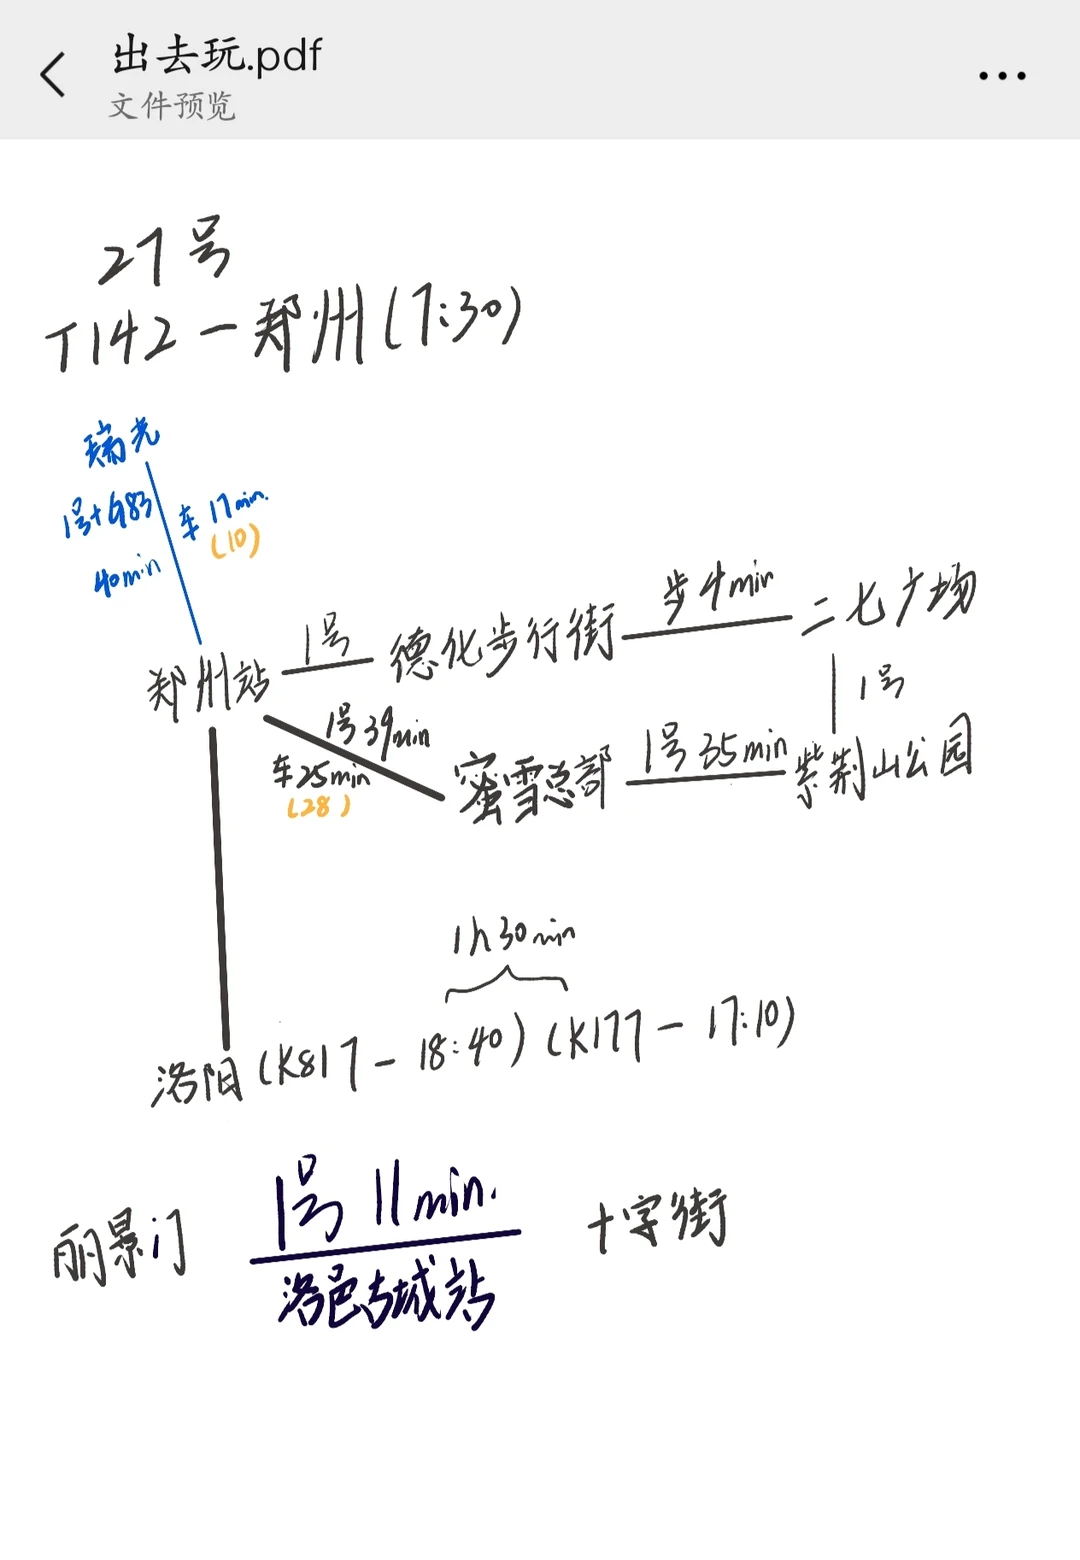 出去玩.pdf
文件预览
27号
T142－郑州(7:30)
瑞光
1号+G83
40min
车 17min.
(10)
郑州站
1号
德化步行街
步9min
二七广场
1号
1号39min
车25min
(28)
蜜雪总部
1号 35min
紫荆山公园
1h30min
洛阳(K817－18:40)(K177－17:10)
丽景门
1号 11min.
洛邑古城站
十字街